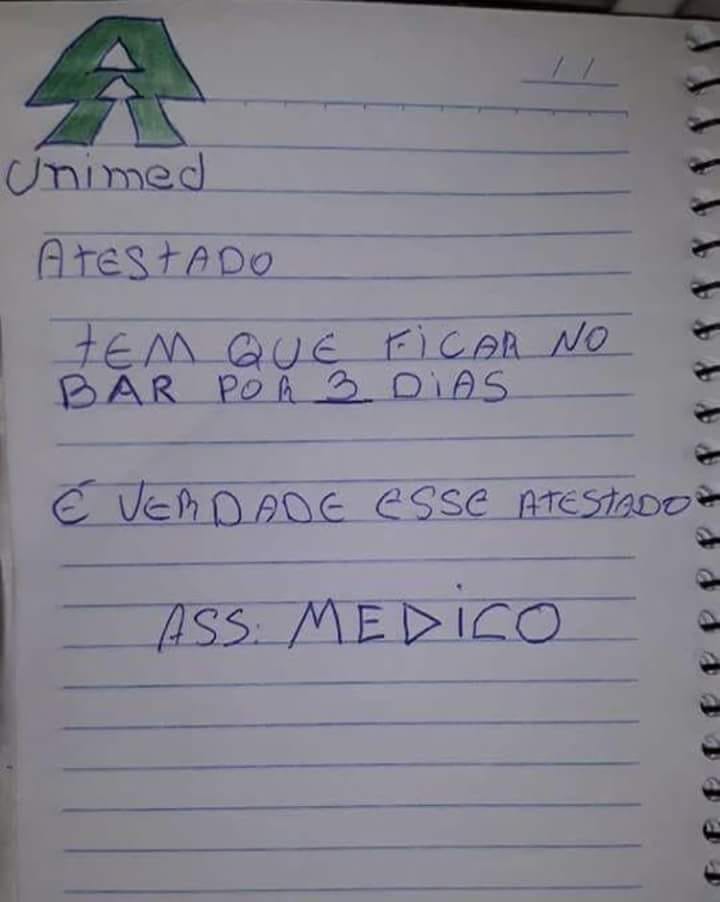 / /
Unimed
ATESTADO
TEM QUE FICAR NO
BAR POR 3 DIAS
É VERDADE ESSE ATESTADO
ASS: MEDICO